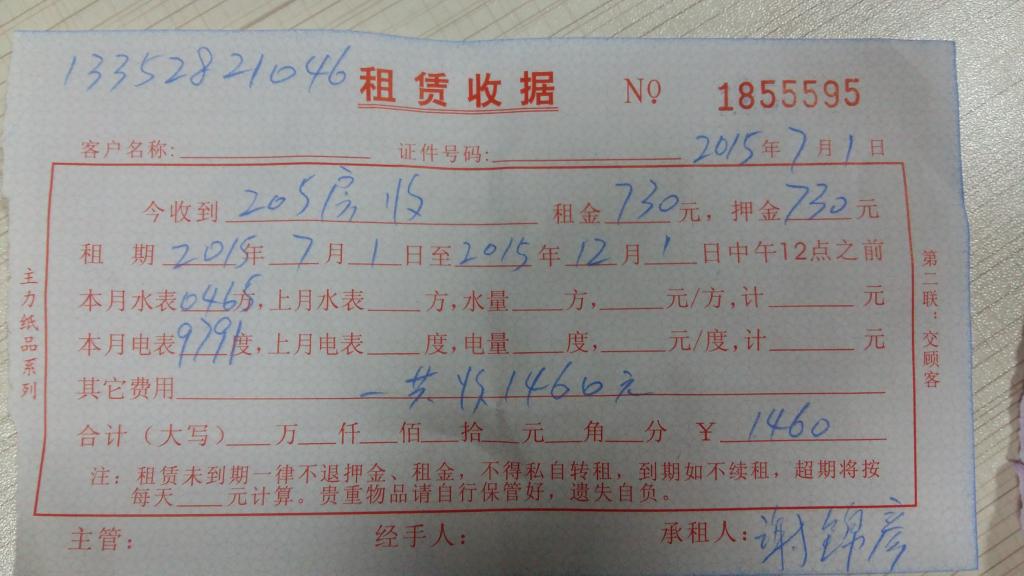 13352821046 租赁收据 No 1855595
客户名称: 证件号码: 2015年7月1日
今收到 205房收 租金730元，押金730元
租 期 2015年 7月 1日至2015年 12月 1日中午12点之前
本月水表0465方，上月水表 方，水量 方， 元/方，计 元
本月电表9791度，上月电表 度，电量 度， 元/度，计 元
其它费用 一共收1460元
合计（大写） 万 仟 佰 拾 元 角 分 ￥ 1460
注：租赁未到期一律不退押金、租金，不得私自转租，到期如不续租，超期将按
每天 元计算。贵重物品请自行保管好，遗失自负。
主管： 经手人： 承租人：谢锦彦
主力纸品系列
第二联：交顾客